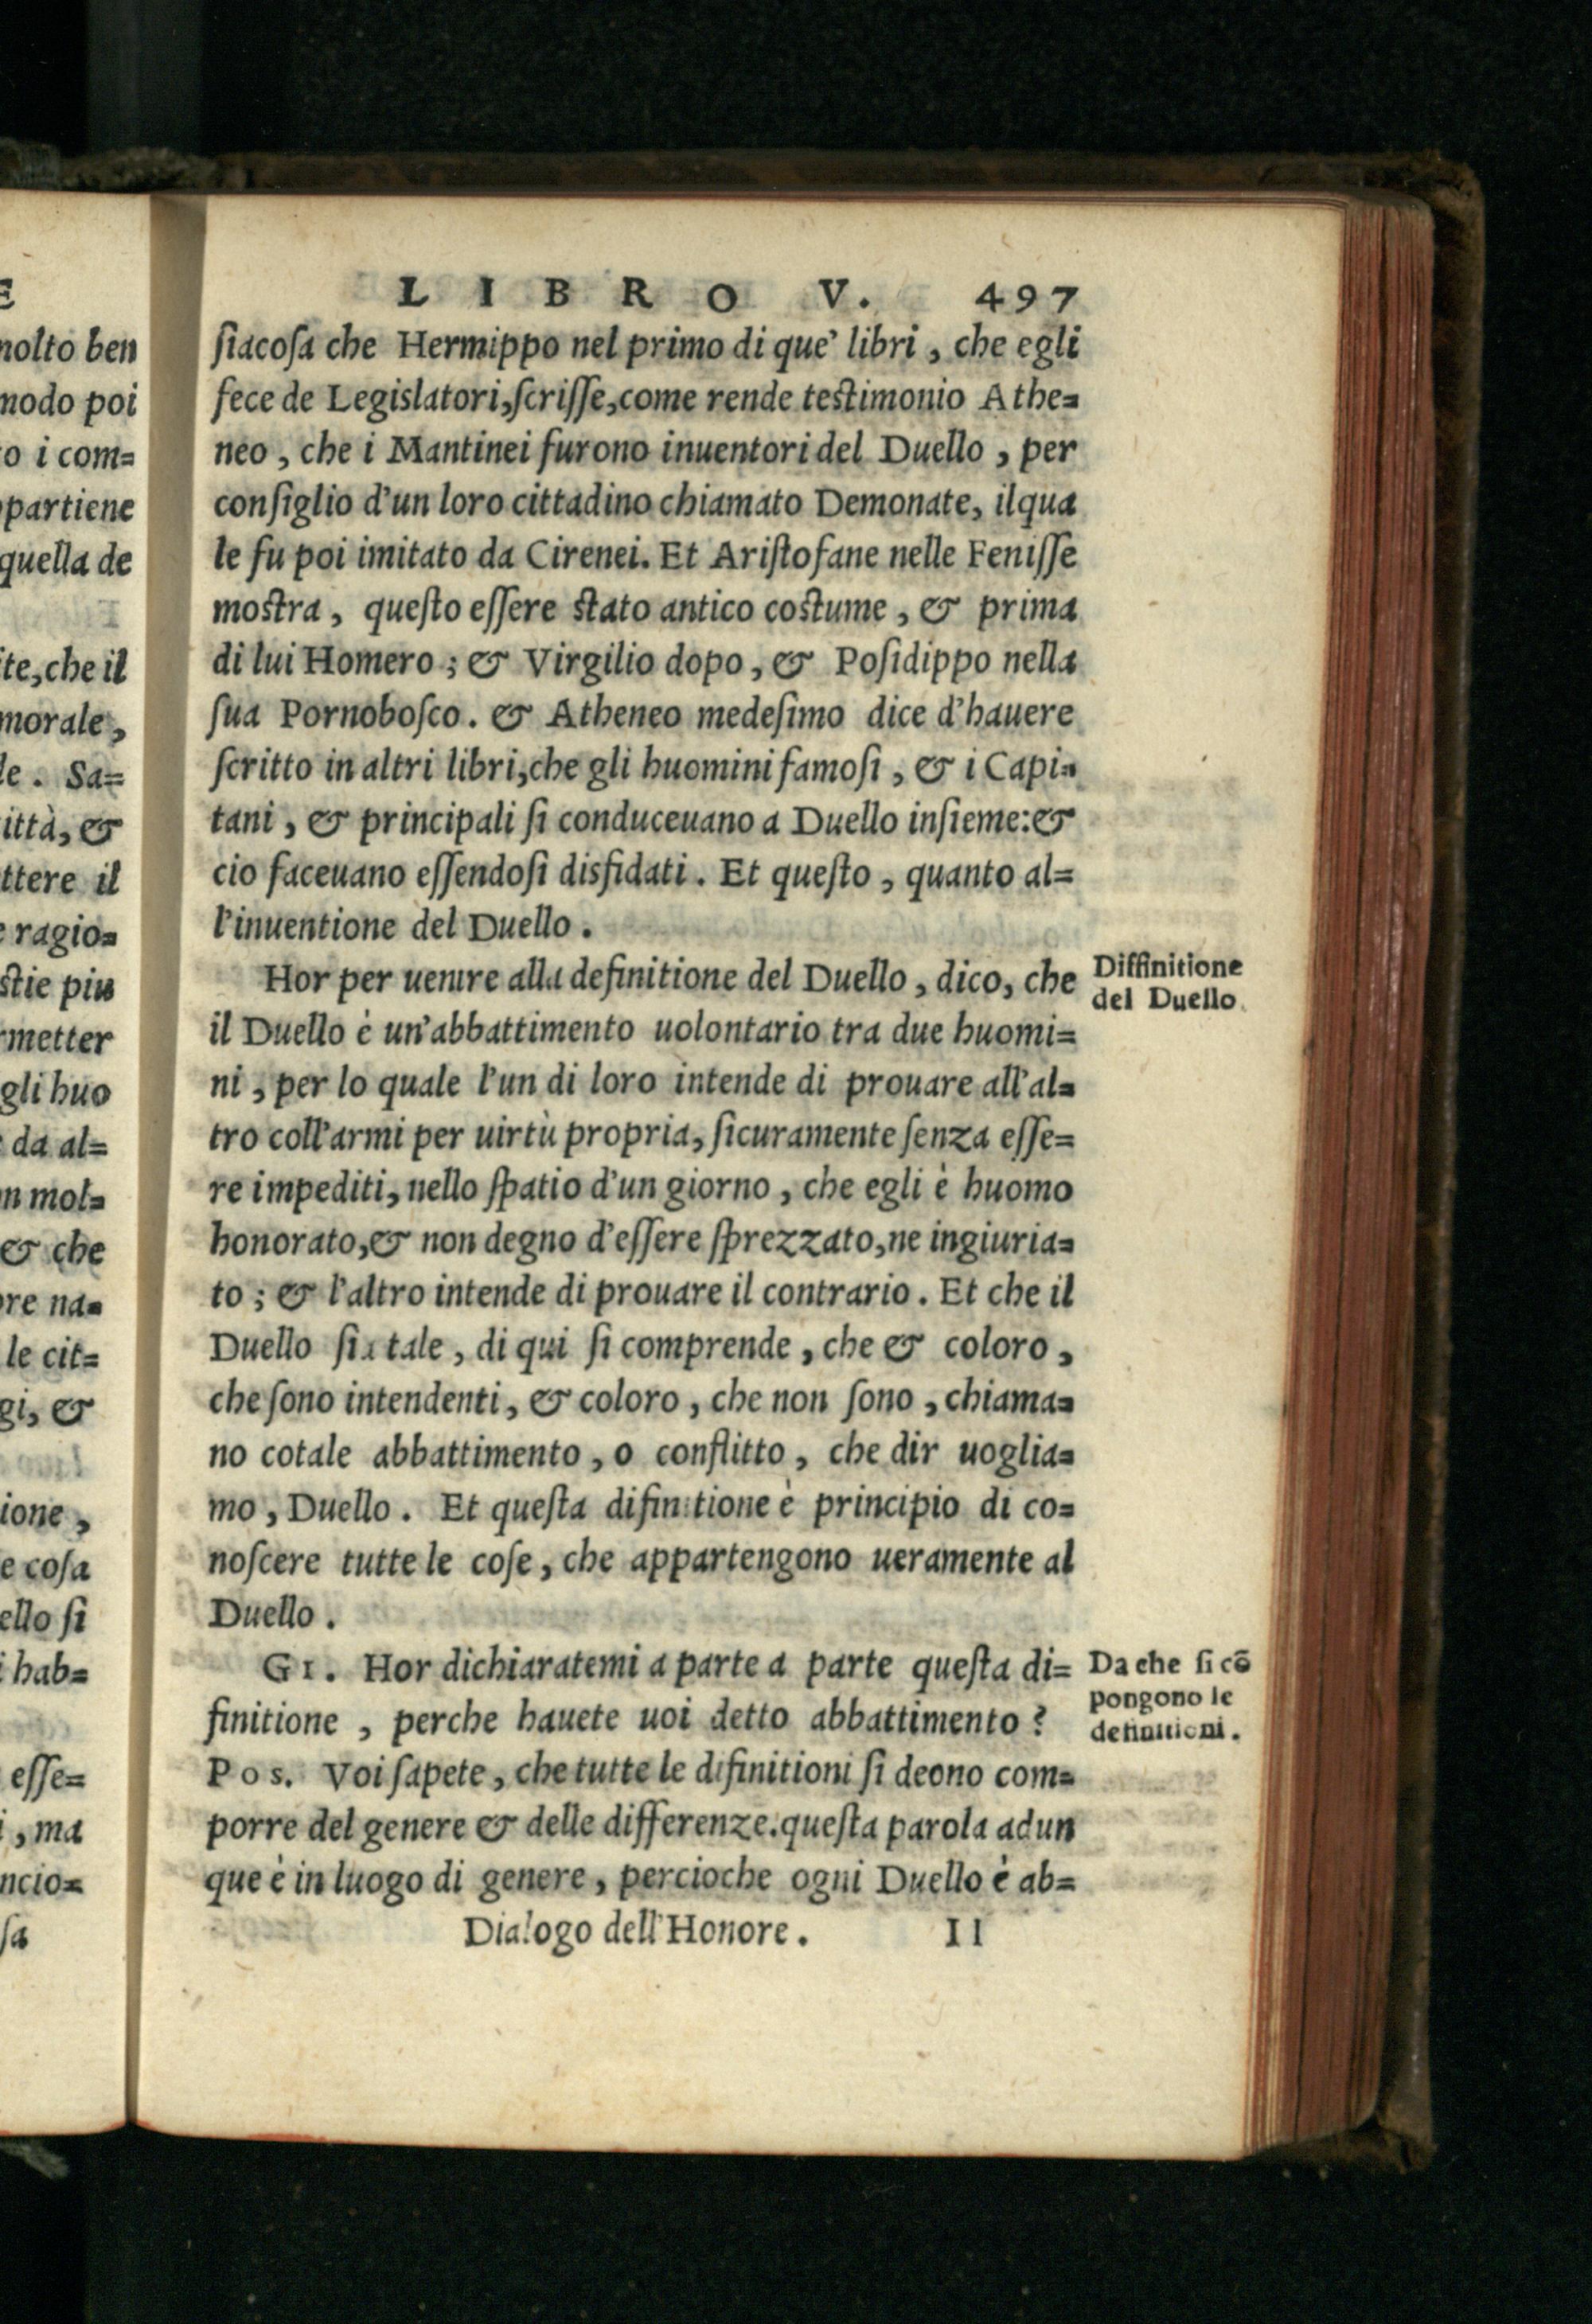 E
molto ben
modo poi
to i com=
ppartiene
quella de
ite, che il
morale,
le. Sa=
ittà, &
ttere il
e ragio=
stie piu
rmetter
gli huo
da al=
n mol=
& che
ore na=
le cit=
gi, &
ione,
e coſa
ello ſi
i hab=
eſſe=
i, ma
ncio=
ſa
LIBRO V. 497
ſiacoſa che Hermippo nel primo di que' libri, che egli
fece de Legislatori, ſcriſſe, come rende teſtimonio Athe=
neo, che i Mantinei furono inuentori del Duello, per
conſiglio d'un loro cittadino chiamato Demonate, ilqua
le fu poi imitato da Cirenei. Et Ariſtofane nelle Feniſſe
moſtra, queſto eſſere ſtato antico coſtume, & prima
di lui Homero; & Virgilio dopo, & Poſidippo nella
ſua Pornoboſco. & Atheneo medeſimo dice d'hauere
ſcritto in altri libri, che gli huomini famoſi, & i Capi=
tani, & principali ſi conduceuano a Duello inſieme: &
cio faceuano eſſendoſi disfidati. Et queſto, quanto al=
l'inuentione del Duello.
Hor per uenire alla definitione del Duello, dico, che
il Duello è un'abbattimento uolontario tra due huomi=
ni, per lo quale l'un di loro intende di prouare all'al=
tro coll'armi per uirtù propria, ſicuramente ſenza eſſe=
re impediti, nello ſpatio d'un giorno, che egli è huomo
honorato, & non degno d'eſſere ſprezzato, ne ingiuria=
to; & l'altro intende di prouare il contrario. Et che il
Duello ſia tale, di qui ſi comprende, che & coloro,
che ſono intendenti, & coloro, che non ſono, chiama=
no cotale abbattimento, o conflitto, che dir uoglia=
mo, Duello. Et queſta difinitione è principio di co=
noſcere tutte le coſe, che appartengono ueramente al
Duello.
GI. Hor dichiaratemi a parte a parte queſta di=
finitione, perche hauete uoi detto abbattimento?
Pos. Voi ſapete, che tutte le difinitioni ſi deono com=
porre del genere & delle differenze. queſta parola adun
que è in luogo di genere, percioche ogni Duello è ab=
Dialogo dell'Honore. II
Diffinitione
del Duello.
Da che ſi cõ
pongono le
definitioni.